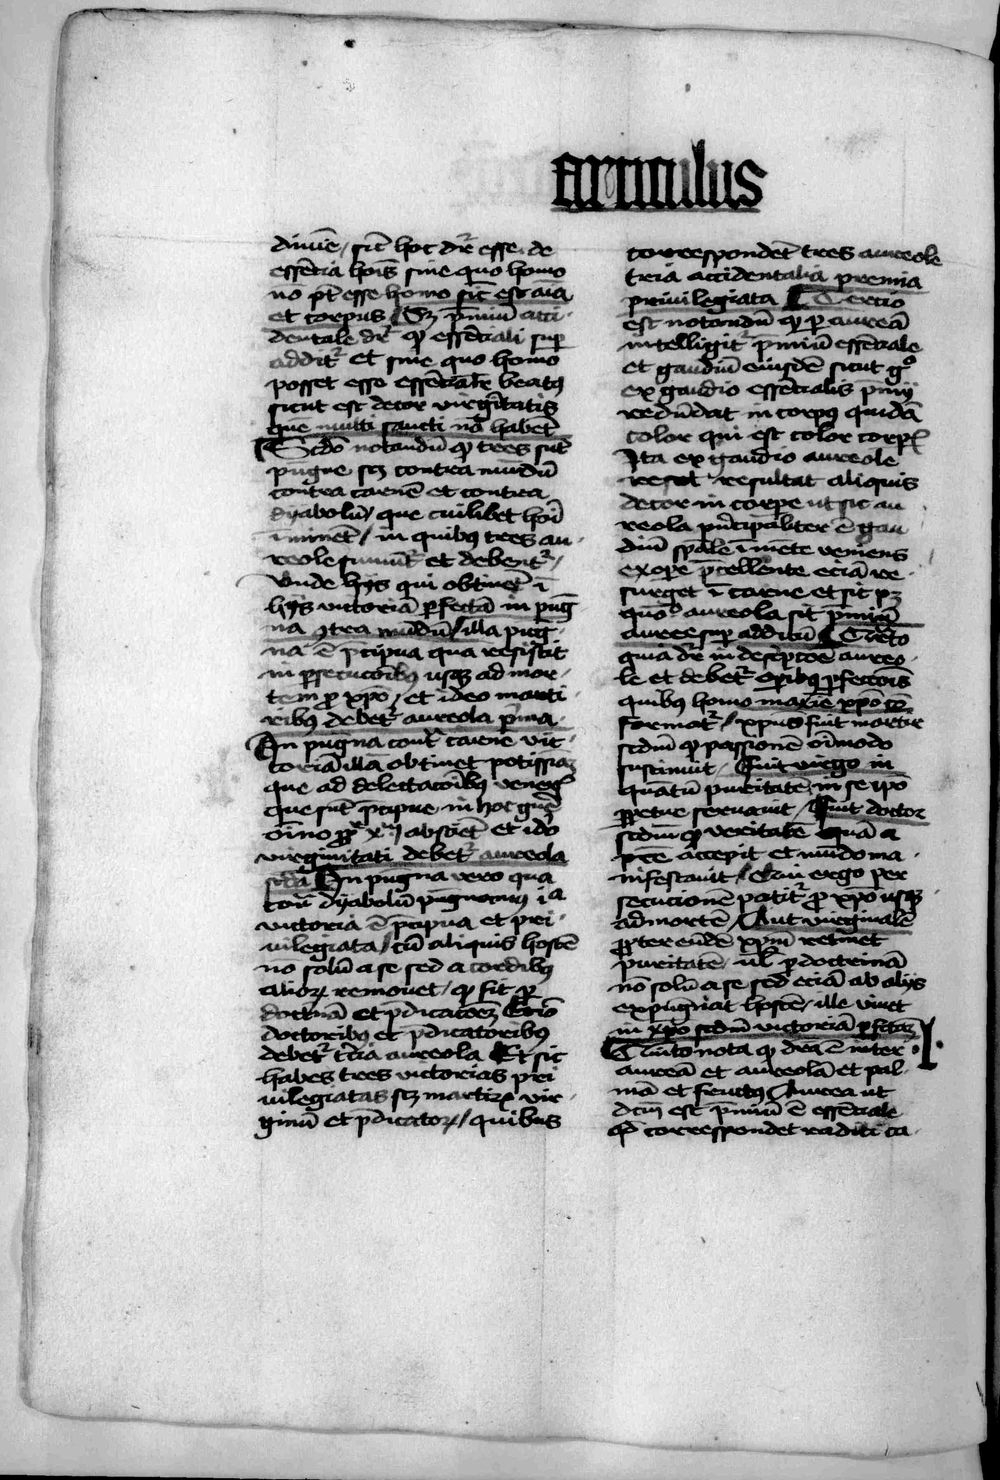 articulus
diuīe / sic̄ hoc dr̄ esse de
essētia hoīs sine quo homo
nō pt̄ esse homo sic̄ est aīa
et corpus / Sꝫ p̄miū acci
dentale dr̄ qͥ essētiali suꝑ
additᷣ et sine quo homo
posset esse essētialr̄ beatꝰ
sicut est decor virgītatis
quē multi sancti nō habēt
Scd̄o notandū ꝙ tres sūt
pugne scꝫ contra mūdū
contra carnē et contra
dyabolū / que cuilibet hoī
īminēt / in quibꝰ tres au
reole sumūtᷣ et debentᷣ /
vnde hijs qui obtinēt ī
hijs victoriā ꝑfectā in pug̅
na ꝯtra mūdū / illa pug
na ē p̄cipua qua resistit
in ꝑsecucōibꝰ usqꝫ ad mor
tem ꝓ xp̄o / et ideo marti
ribꝰ debetᷣ aureola p̄ma
In pugna cont̄ carnē vic
toriā illā obtinet potissimā
que ad delectacōibꝰ venereis
que sūt p̄cipue in hoc gn̄e
oīno ꝓpᷣ xp̄m abstinēt et idō
virginitati debetᷣ aureola
scd̄a In pugna vero qua
cont̄ dyabolū pugnamus illa
victoria ē p̄cipua et pri
uilegiata / cū aliquis hostē
nō solū a se sed a cordibꝰ
alioꝝ remouet / qͥ fit ꝑ
doctrinā et p̄dicacōeꝫ Ergo
doctoribꝰ et p̄dicatoribꝰ
debetᷣ t̄cia aureola Et sic
habes tres victorias pri
uilegiatas scꝫ martiꝝ vir
ginū et p̄dicatoꝝ / quibus
correspondēt tres aureole
tria accidentalia premia
priuilegiata Tercio
est notandū ꝙ ꝑ aureā
intelligitᷣ p̄miū essētiale
et gaudiū eiusdē sicut gͦ
ex gaudio essētialis p̄mij
redūdat in corpꝰ quidā
color qui est color corpꝭ
Ita ex gaudio aureole
resul resultat aliquis
decor in corpe ut sic au
reola p̄ncipaliter ē gau
diū spāle ī mēte veniens
ex oꝑe p̄cellente eciā re
surget ī carne et sic pꝫ
quō aureola sit p̄miū
auree suꝑ additū Quarto
quia dr̄ in descripcōe aureo
le et debetᷣ oꝑibꝰ ꝑfectōis
quibꝰ homo maxīe xp̄o cō
formatᷣ / xp̄us fuit martir
scdm̄ ꝙ passionē oīmodo
sustinuit / Fuit virgo in
quātū puritatē in se ip̄o
ꝑpetue seruauit / Fuit doctor
scdm̄ ꝙ veritatē quā a
p̄re accepit et mūdo ma
nifestauit / Cum ergo per
secucionē patitᷣ ꝓ xp̄o usqꝫ
ad mortē / Aut virginalē
ꝓpter eūdē xp̄m retinet
puritatē / ul̄ ꝑ doctrinā
nō solū a se sed eciā ab alijs
expugnat hostē / ille viuet
in xp̄o scdm̄ victoriā ꝑfectā
Quinto nota ꝙ dr̄a ē inter
aureā et aureolā et pal
mā et fructꝰ Aurea ut
dcm̄ est p̄miū ē essētiale
qd̄ correspondet radici ca